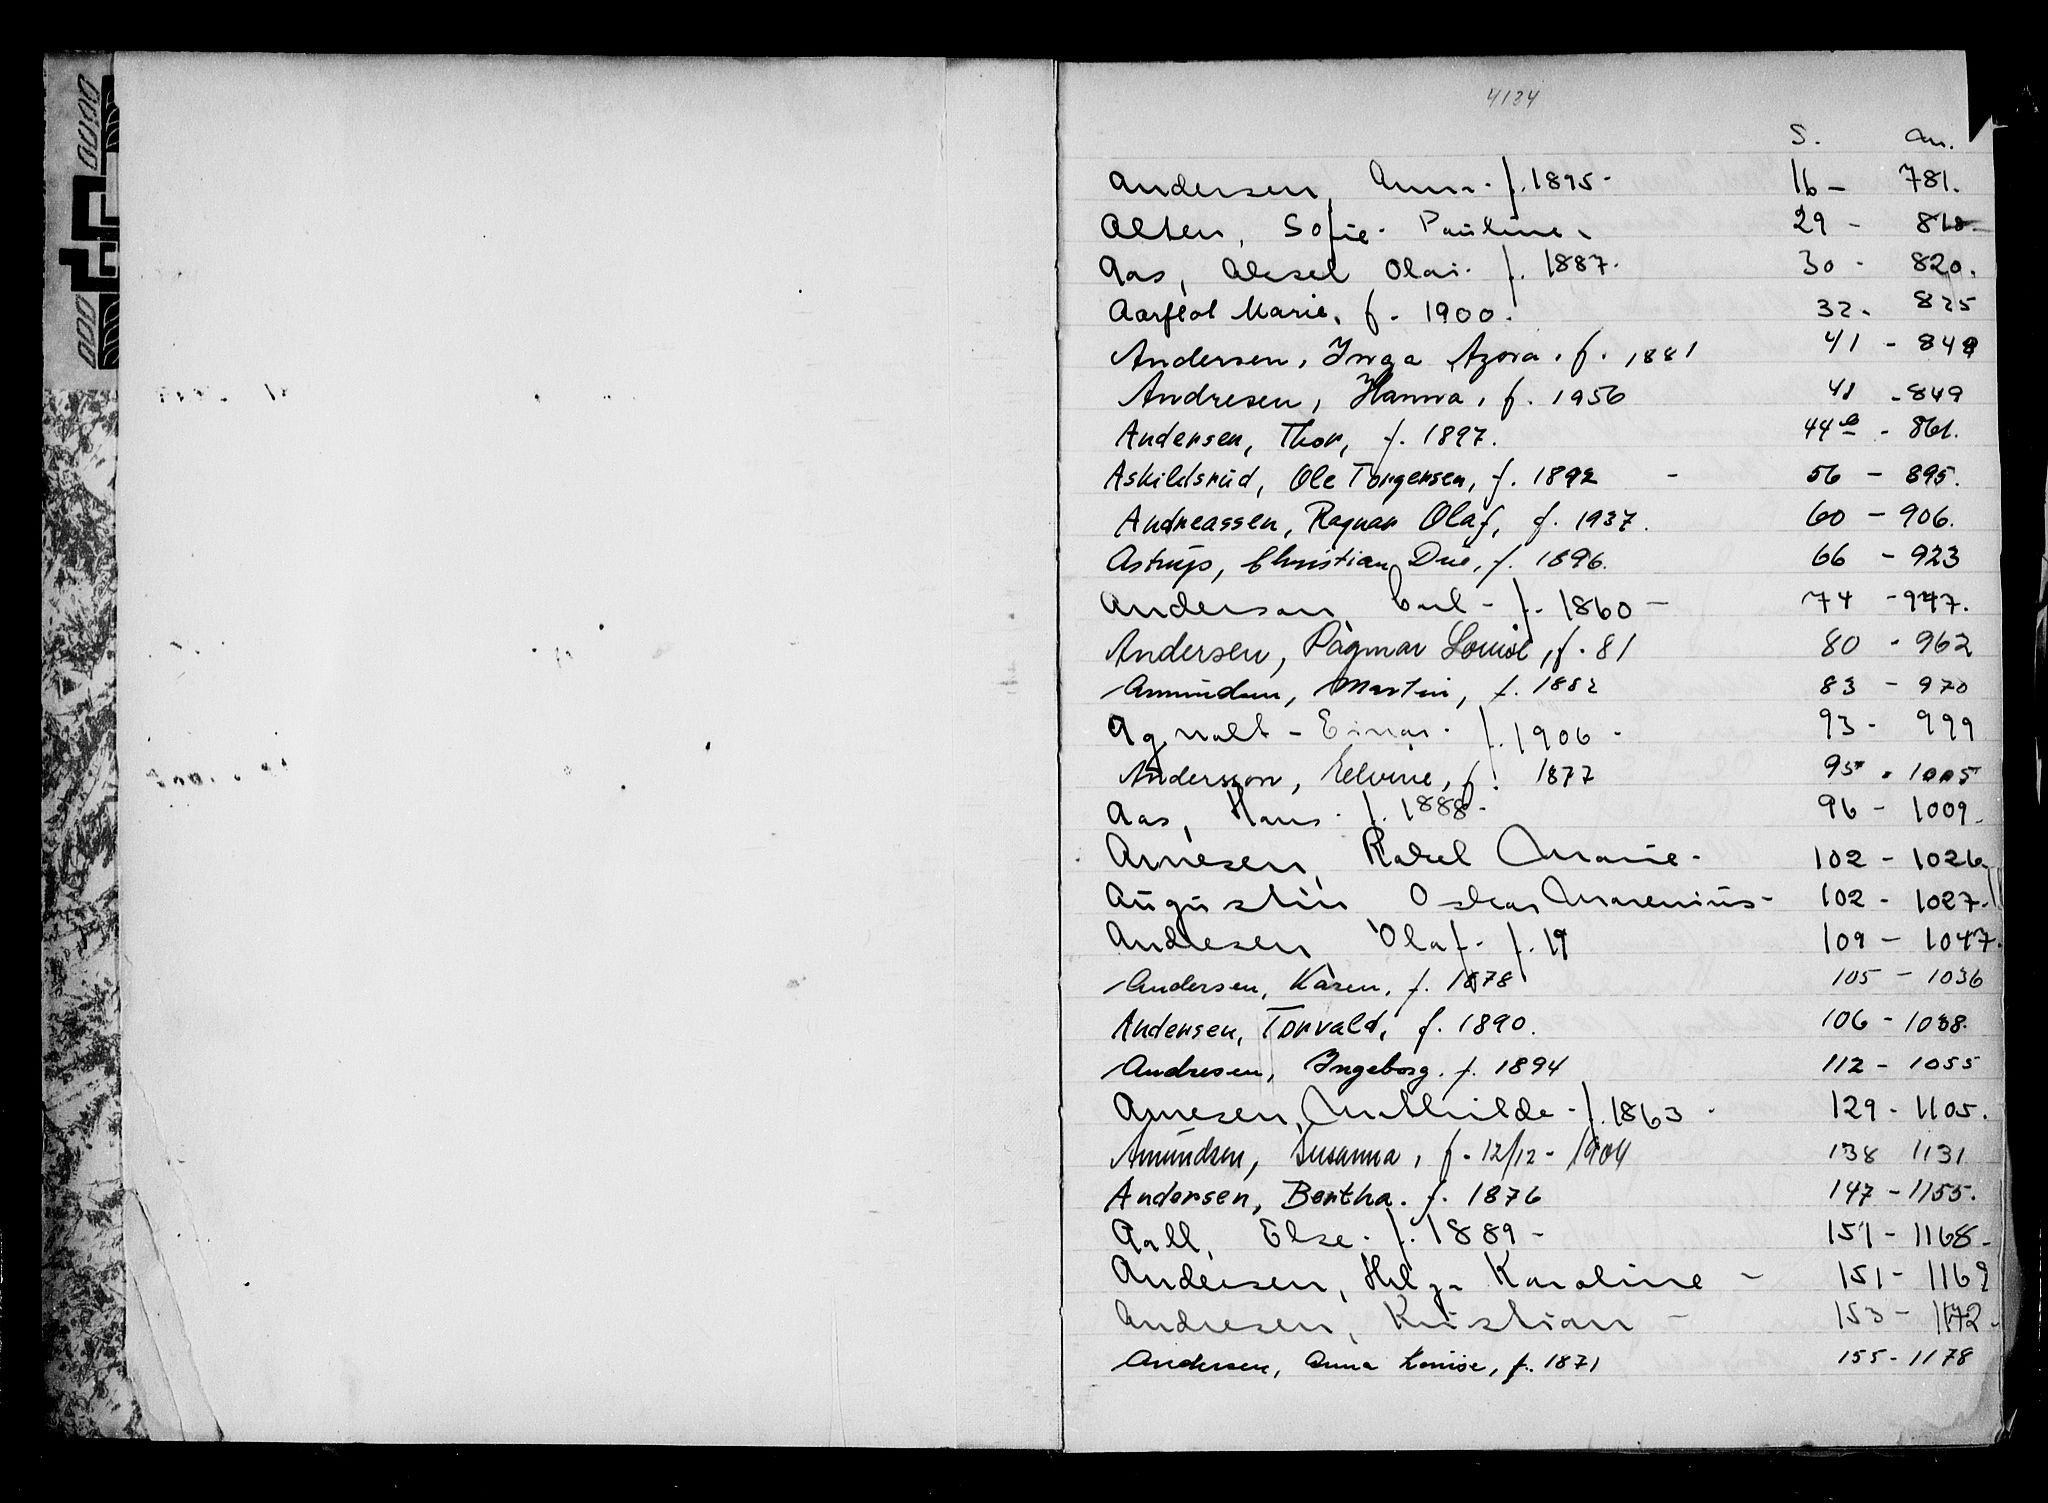 4134
S. An.
Andersen, Anna. f. 1895. 16 - 781.
Alten, Sofie Pauline. 29 - 818.
Aas, Aksel Olai. f. 1887. 30 - 820.
Marie, f. 1900. 32. 825
Andersen, Inga Azora. f. 1881 41 - 848
Andresen, Hanna, f. 1956 41 - 849
Andersen, Thor, f. 1897. 44 b - 861.
Askildsrud, Ole Torgersen, f. 1892 - 56 - 895.
Andreassen, Ragnar Olaf, f. 1937. 60 - 906.
Astrup, Christian Due, f. 1896. 66 - 923
Anderson Carl - f. 1860 - 74 - 947.
Andersen, Dagmar Louise, f. 81 80 - 962
Amundsen, Martin, f. 1882 83 - 970
Agnalt - Einar. f. 1906 - 93 - 999
Andersson, Elvine, f. 1877 95 . 1005
Aas, Hans. f. 1888 - 96 - 1009.
Arnesen, Rakel Marie - 102 - 1026
Augustin Oskar Marenius - 102 - 1027.
Andresen Olaf. f. 19 109 - 1047.
Andersen, Karen, f. 1878 105 - 1036
Andersen, Torvald, f. 1890. 106 - 1038.
Andresen, Ingeborg. f. 1894 112 - 1055
Arnesen, Mathilde - f. 1863 - 129 - 1105.
Amundsen, Susanna, f. 12/12 - 1904 138 1131
Andersen, Bertha. f. 1876 147 - 1155.
Aall, Else. f. 1889 - 151 - 1168 -
Andersen, Helga Karoline - 151 - 1169
Andresen, Kristian - 153 - 1172 -
Andersen, Anna Louise, f. 1871 155 - 1178